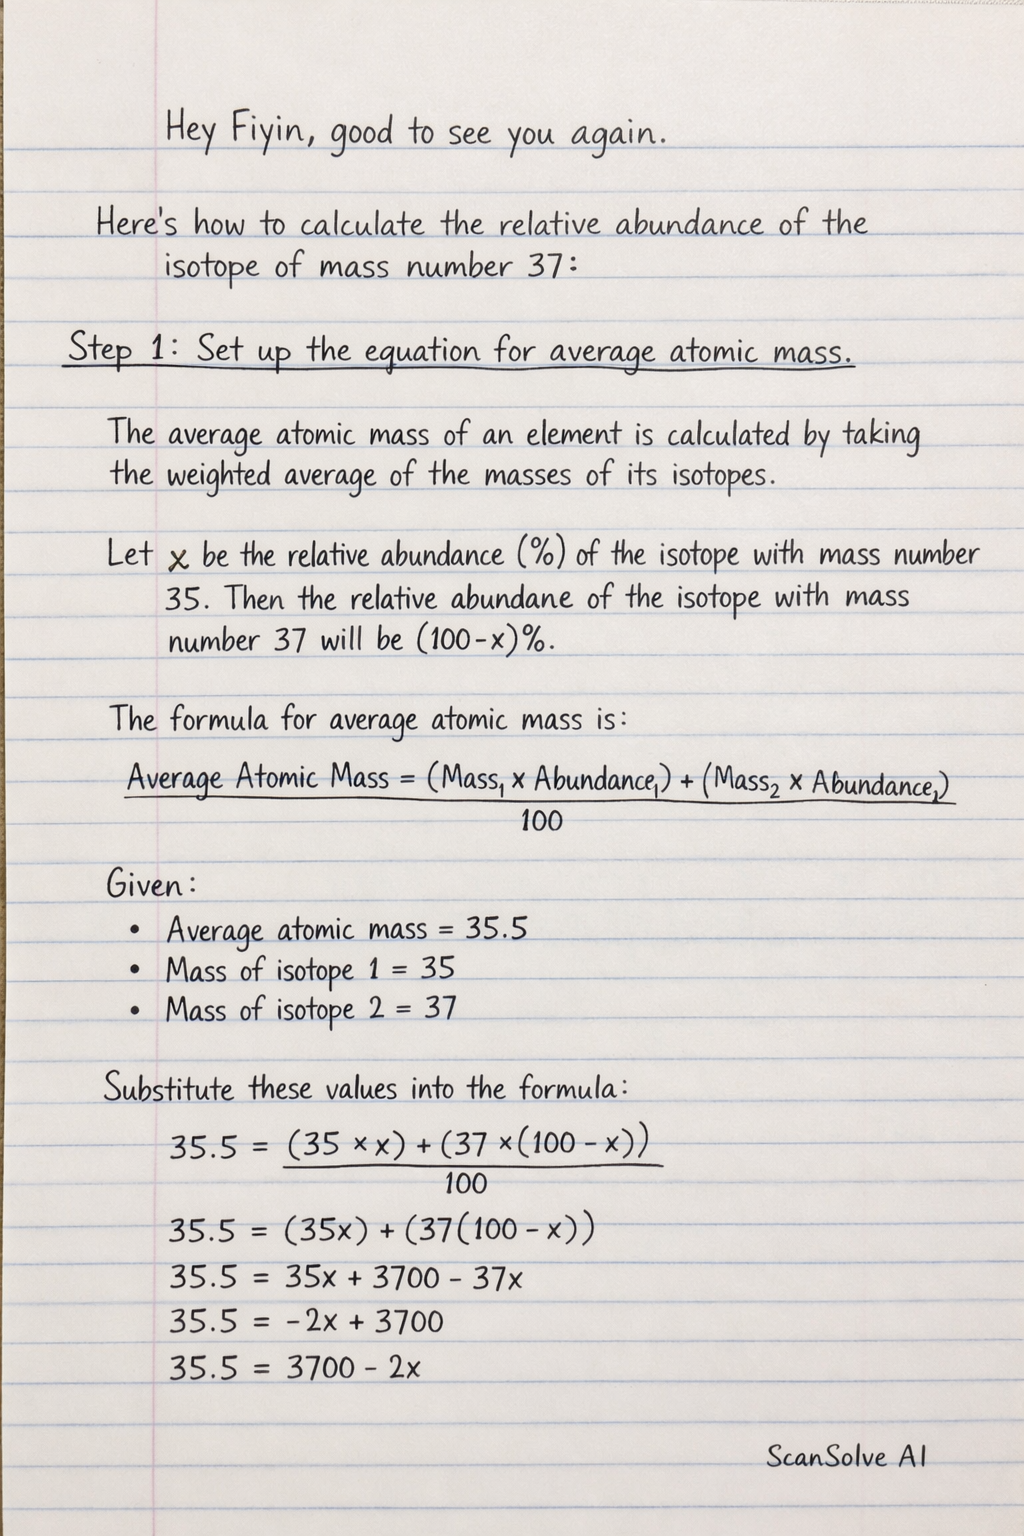 Hey Fiyin, good to see you again.
Here's how to calculate the relative abundance of the
isotope of mass number 37:
Step 1: Set up the equation for average atomic mass.
The average atomic mass of an element is calculated by taking
the weighted average of the masses of its isotopes.
Let x be the relative abundance (%) of the isotope with mass number
35. Then the relative abundane of the isotope with mass
number 37 will be (100-x)%.
The formula for average atomic mass is:
Average Atomic Mass = (Mass₁ x Abundance₁) + (Mass₂ x Abundance₂)
100
Given:
• Average atomic mass = 35.5
• Mass of isotope 1 = 35
• Mass of isotope 2 = 37
Substitute these values into the formula:
35.5 = (35 × x) + (37 ×(100 - x))
100
35.5 = (35x) + (37(100 - x))
35.5 = 35x + 3700 - 37x
35.5 = -2x + 3700
35.5 = 3700 - 2x
ScanSolve AI